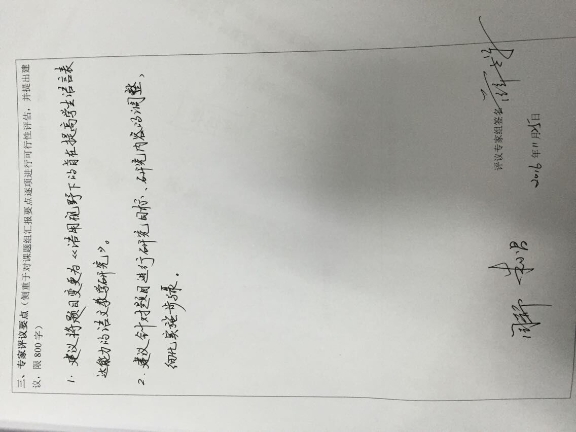 三、专家评议要点（侧重于对课题组汇报要点逐项进行可行性评估，并提出建
议，限800字）
1. 建议将题目变更为《语用视野下旨在提高学生语言表
达能力的语文教学研究》。
2. 建议针对题目进行研究目标、研究内容的调整，
细化实施步骤。
评议专家组签名
2016年11月25日